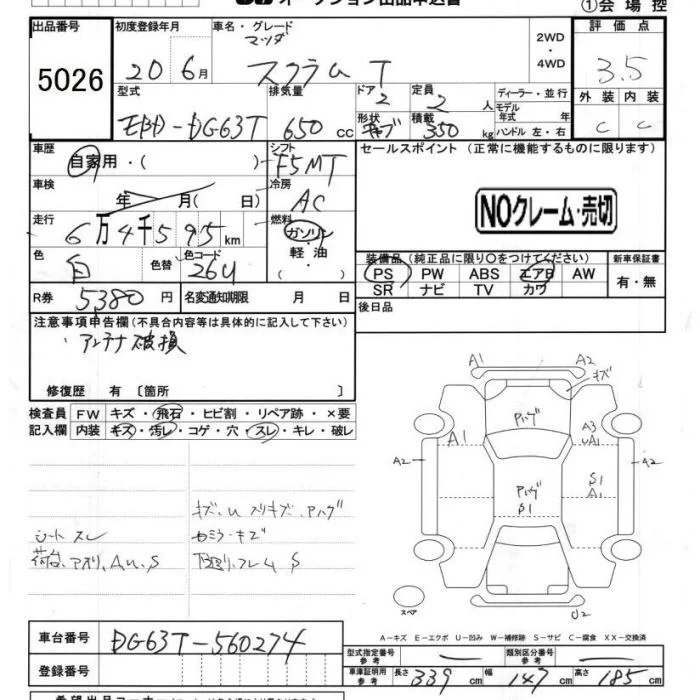 オークション出品申込書
①会場控
出品番号 初度登録年月 車名・グレード 評価点
5026 20 6月 マツダ スクラム T 2WD ・ 4WD 3.5
型式 排気量 ドア 定員 ディーラー・並行 外装 内装
EBD-DG63T 650 cc 2 2 人 モデル年式 年 C C
形状 積載 350 kg ハンドル 左・右
車歴 自家用・( ) シフト F5MT セールスポイント (正常に機能するものに限ります)
車検 年 月( 日) 冷房 AC
NOクレーム・売切
走行 6万4千595km 燃料 ガソリン・軽油・( )
色 白 色替 色コード 26U
装備品(純正品に限り〇をつけてください) 新車保証書
PS PW ABS エアB AW 有・無
SR ナビ TV カワ
R券 5380円 名変通知期限 月 日 後日品
注意事項申告欄(不具合内容等は具体的に記入して下さい)
アンテナ破損
修復歴 有 〔箇所 〕
検査員 FW キズ・飛石・ヒビ割・リペア跡・×要
記入欄 内装 キズ・汚レ・コゲ・穴・スレ・キレ・破レ
A1 A2
キズ
Pハゲ
A1 A3
UA1
A2 A2
S1
A1
Pハゲ
S1
シート スレ
荷台、アオリ、A、U、S
スペア
U2
A-キズ E-エクボ U-凹み W-補修跡 S-サビ C-腐食 XX-交換済
車台番号 DG63T-560274
登録番号
型式指定番号 参考 — 類別区分番号 参考 —
車庫証明用 参考 長さ 339 cm 幅 147 cm 高さ 185 cm
希望出品コーナー